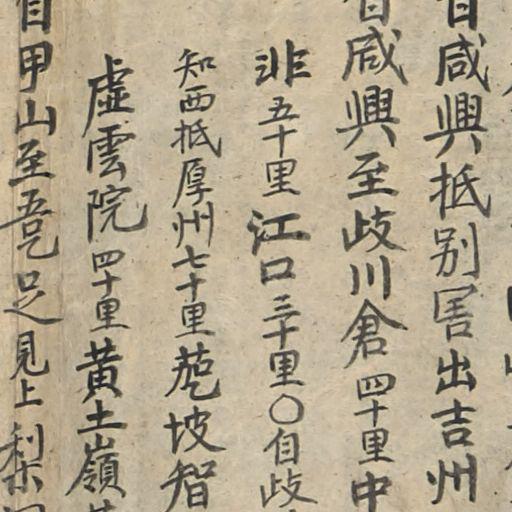 自咸興抵別害出吉州
自咸興至歧川倉四十里中
非五十里江口三十里〇自歧
知西抵厚州七十里苊坡智
虛雲院四十里黃土嶺
自甲山至吾乙足見上梨